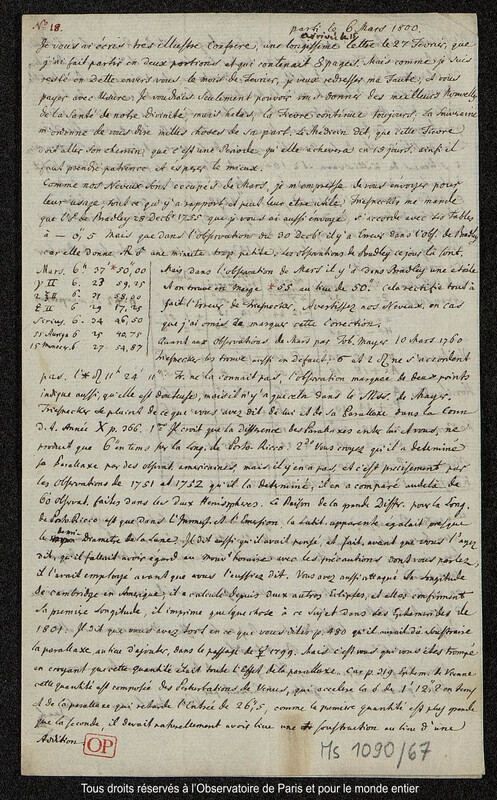 N.° 18.
parti le 6 Mars 1800.
arrivé le 18
Je vous ai écris très illustre Confrère, une longissime lettre le 27 Fevrier, que
j'ai fait partir en deux portions et qui contenait 8 pages. Mais comme je suis
resté en Dette envers vous le mois de Fevrier, je veux redresser ma Faute, et vous
payer avec Usure. Je voudrois seulement pouvoir vous donner des meilleurs Nouvelles
de la Santé de notre Divinité, mais helas, la Fievre continue toujours, la Souveraine
m'ordonne de vous dire milles choses de sa part. Le Médecin dit, que cette Fievre
doit aller son chemin, que c'est une Periode qu'elle achevera en 15 jours, ainsi il
faut prendre patience et esperer le mieux.
Comme nos Neveux sont occupés de Mars, je m'empresse de vous envoyer pour
leur usage, tout ce qui y a rapport, et peut leur être utile. Triesnecker me mande
que l'☍ de Bradley 28 Decb. 1755 que je vous ai aussi envoyé s'accorde avec ses Tables
à — 0",5 Mais que dans l'observation du 30 Decb. il y a Erreur dans l'Obs. de Bradley
car elle donne AR ♂ une minute trop petite; les observations de Bradley ce jour la sont.
Mars. 6h 37' *50",00
γ II 6. 23 59,25
6. 31 58,00
6 29 17,25
Sirius. 6 34 46,50
6 27 54,87
Mais dans l'observation de Mars il y'a dans Bradley une étoile
et on trouve en marge *55 au lieu de 50. cela rectifie tout à
fait l'Erreur de Triesnecker. Avertissez nos Neveux, en cas
que j'ai omis de marquer cette correction.
Quant aux observations de Mars par Tob. Mayer 10 Mars 1760
Triesnecker les trouve aussi en defaut; σ et 2 ne s'accordent
pas. l'* 11h 24' 11" Tr. ne la connait pas, l'observation marquée de deux points
indique aussi, qu'elle est douteuse, mais il n'y a que cela dans le Mss. de Mayer.
Triesnecker se plaint de ce que vous avez dit de lui et de sa Parallaxe dans la Conn
d. t. Année X p. 366. 1mo Il croit que la difference des Parallaxes entre lui et vous, ne
produit que 6" en tems par la long. de Porto-Ricco: 2do Vous croyez qu'il a determiné
sa Parallaxe par des observat. americaines, mais il n'y en a pas, et c'est précisément par
les Observations de 1751 et 1752 qu'il l'a determiné, il en a comparé audelà de
60 observat. faites dans les Deux Hemisphères. La Raison de la grande Diffr. pour la Long.
de Porto Ricco est que dans l'Immers. et l'Emersion, la Latit. apparente egaloit presque
le demi-Diametre de la Lune. Il dit aussi qu'il avait pensé, et fait, avant que vous l'ayez
dit, qu'il falloit avoir égard au Mouvt. horaire avec les précautions dont vous parlez,
il l'avait employé avant que vous l'eussiez dit. Vous avez aussi attaqué sa Longitude
de Cambridge en Amerique, il a calculé depuis deux autres Eclipses, et elles confirment
sa premiere Longitude, il imprime quelque chose à ce sujet dans ses Ephemerides de
1801. Il dit que vous avez tort en ce que vous dites p. 480 qu'il aurait dû soustraire
la parallaxe, au lieu d'ajouter, dans le passage de ☿ 1799. Mais c'est vous qui vous êtes trompé
en croyant que cette quantité étoit toute l'Effet de la parallaxe. Car p. 319 Ephem. de Vienne
cette quantité est composée des Perturbations de Venus, qui accelere la ☌ de 1' 12",2 en tems
et de la parallaxe qui retarde l'Entrée de 26",5, comme la premiere quantité est plus grande
que la seconde, il devait naturellement avoir lieu une soustraction au lieu d'une
Addition.
OP
Ms 1090/67
Tous droits réservés à l'Observatoire de Paris et pour le monde entier